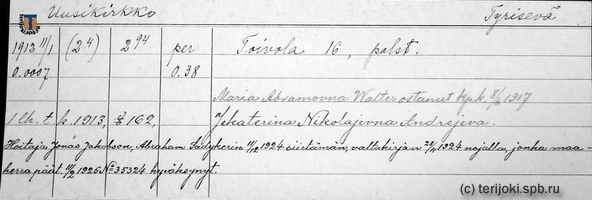 Uusikirkko Tyrisevä
1913 11/1 (2⁴) 2⁹⁴ per Toivola 16, palst.
0.0007 0.38
Maria Abramovna Walter ostanut kpk. 8/6 1917
1 lk. t. k. 1913, § 162, Jekaterina Nikolajevna Andrejeva.
Hoitaja Jonas Jakobson, Abraham Sadykerin 11/2 1924 siirtämän, valtakirjan 1924 nojalla, jonka maa-
herra päät. 1925 No 35324 hyväksynyt.
(c) terijoki.spb.ru